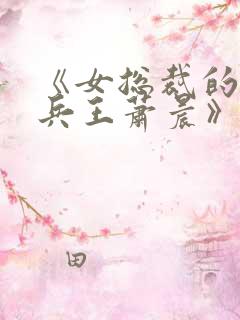 《女总裁的
兵王萧晨》
田